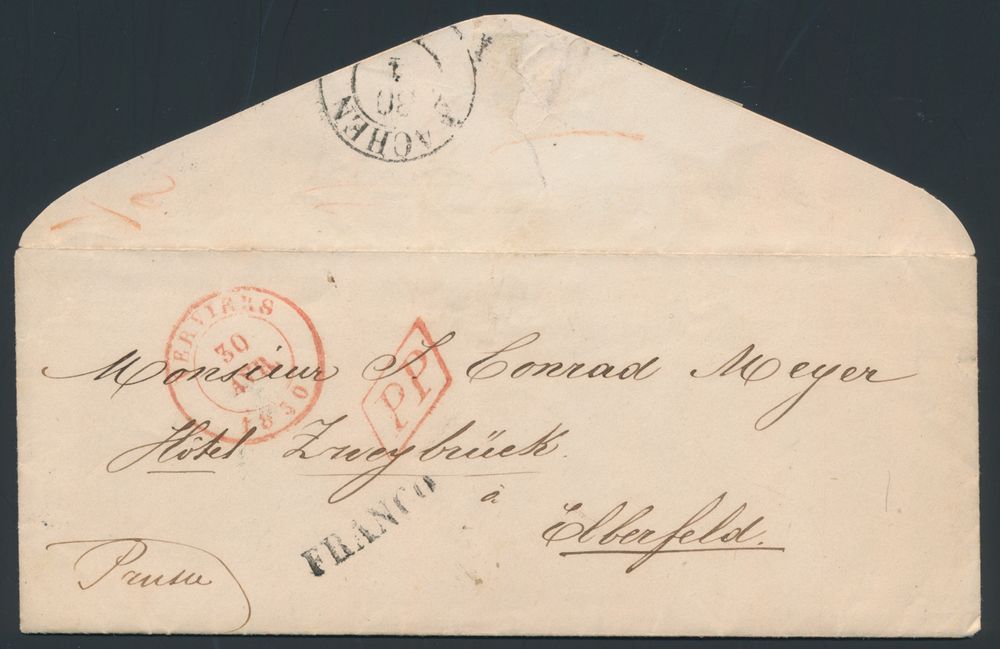 AACHEN
30
1
1/2
VERVIERS
30
AVR.
1850
PP
Monsieur J. Conrad Meyer
Hôtel Zweybrück.
à
Elberfeld.
FRANCO
Prusse